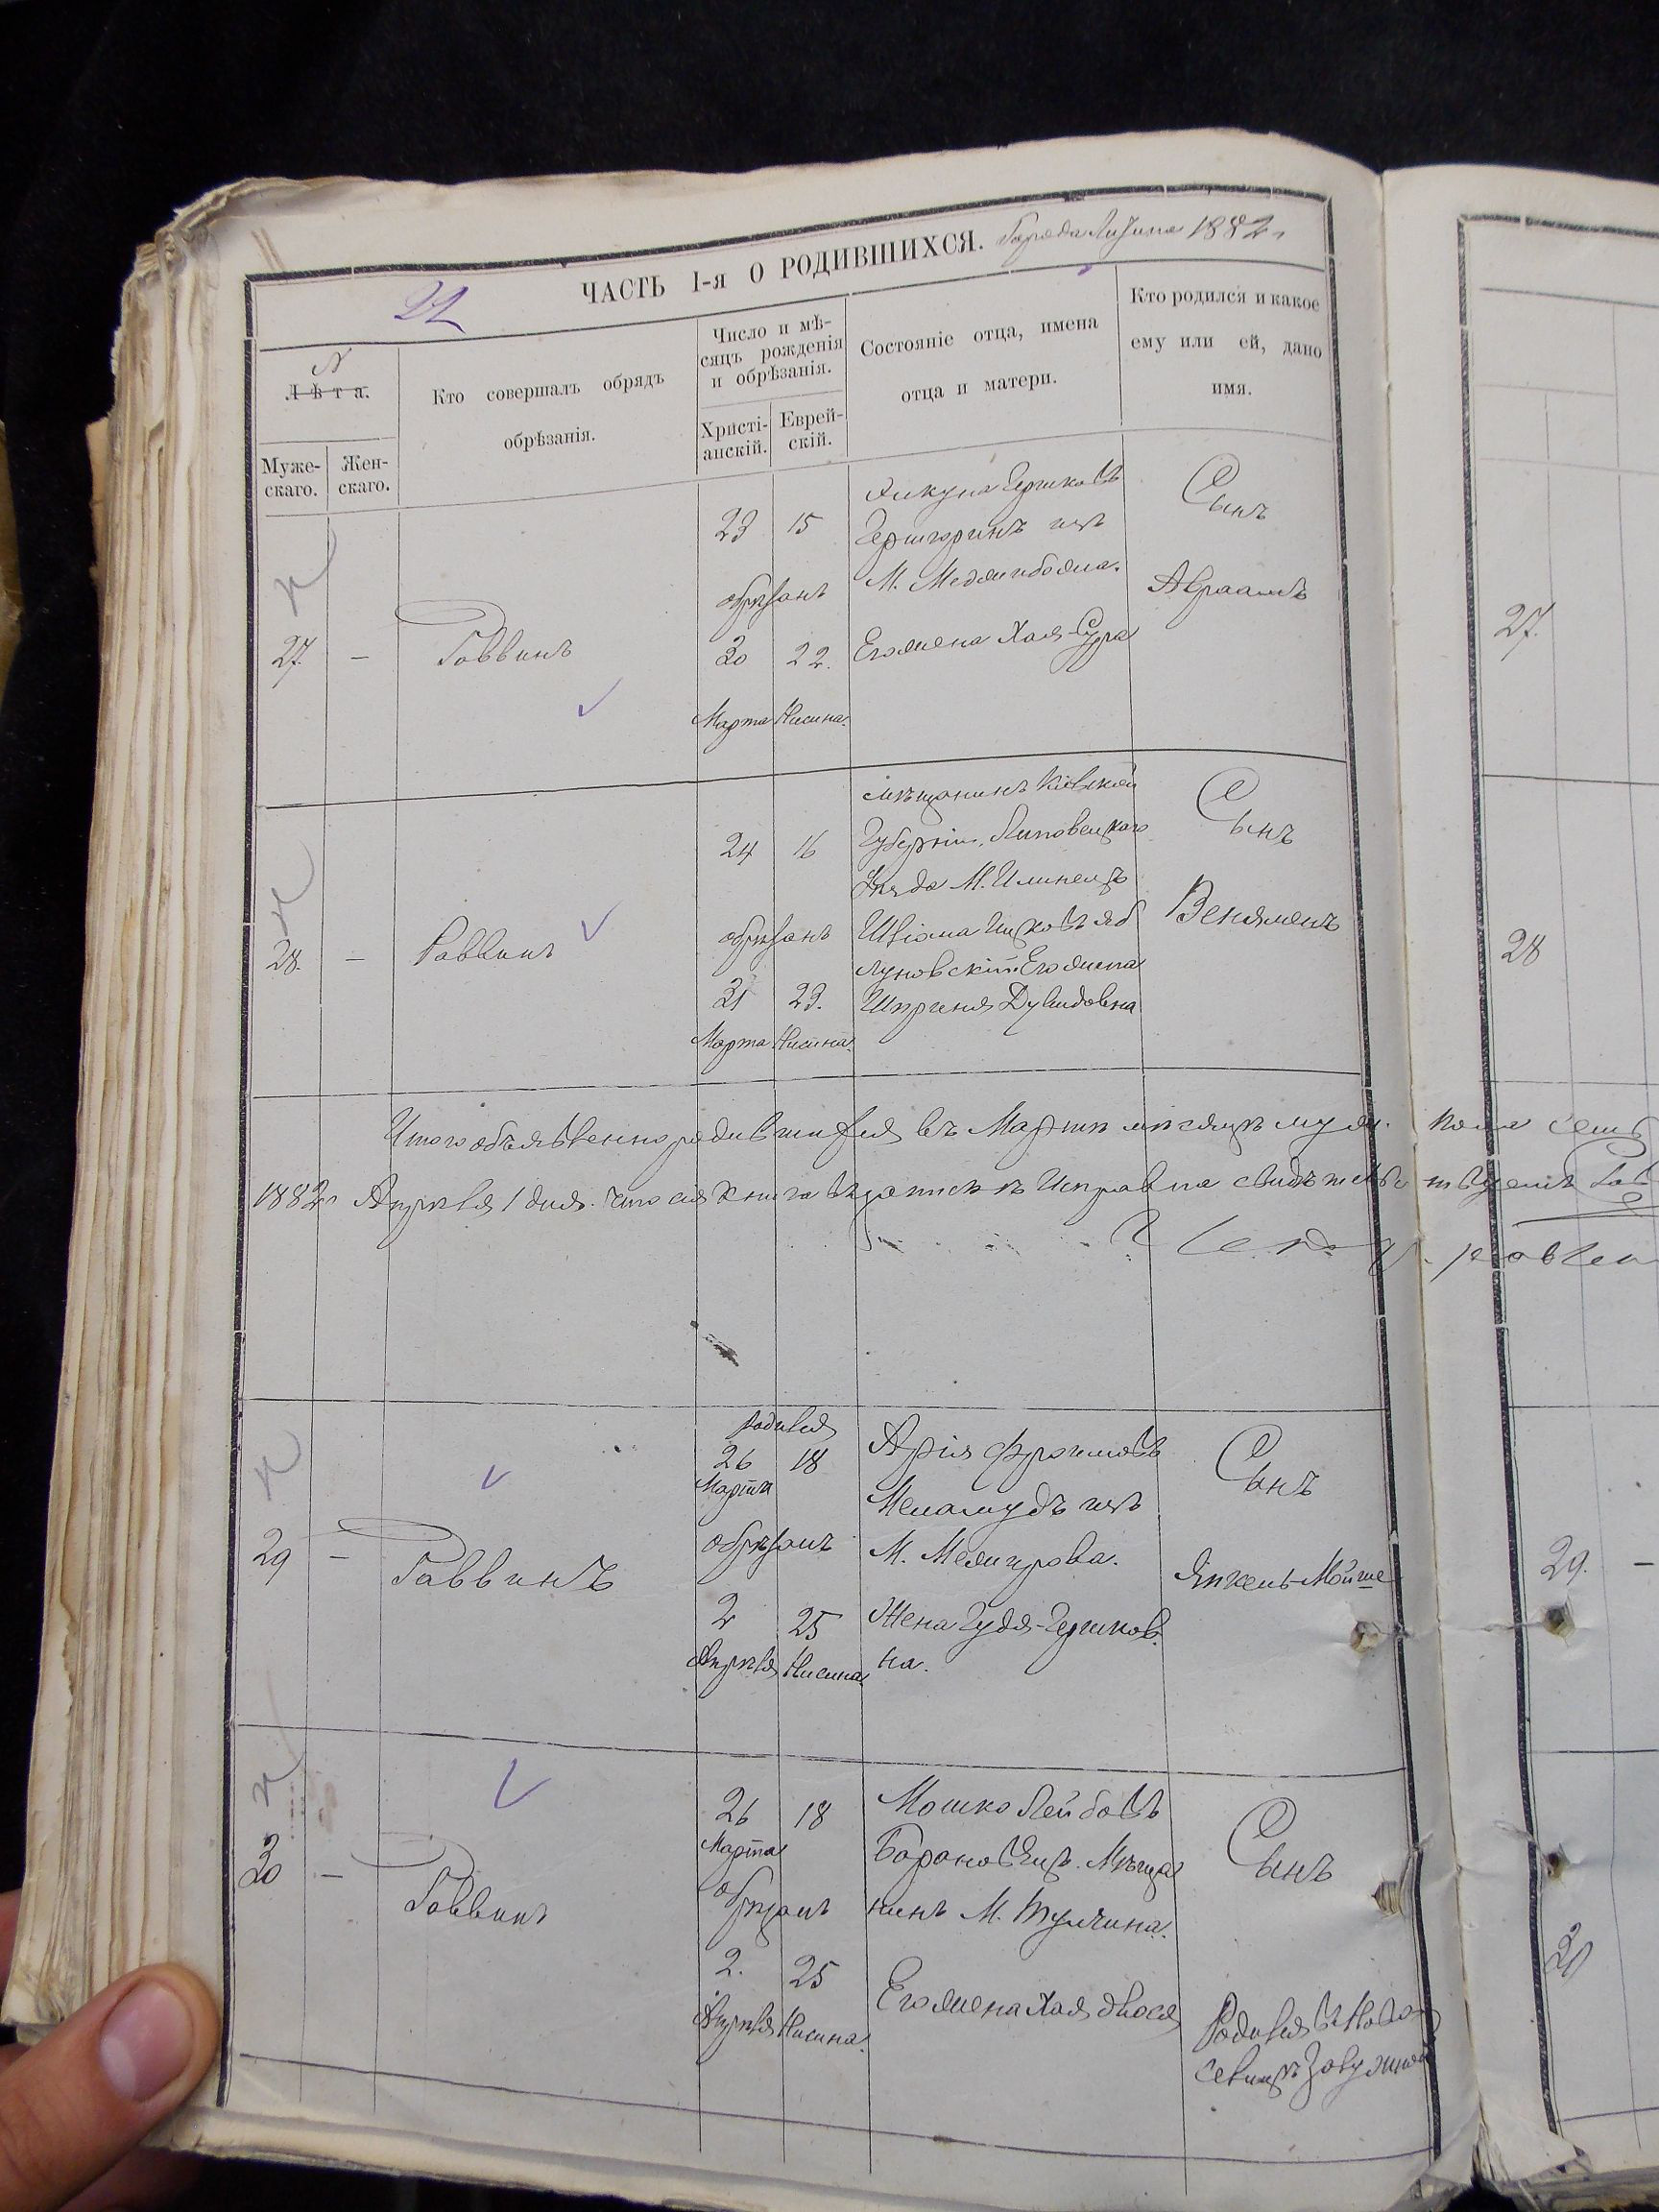 ЧАСТЬ I-я О РОДИВШИХСЯ. Города 1882 г
22
№
Лѣта.
Муже-
скаго.
Жен-
скаго.
Кто совершалъ обрядъ
обрѣзанія.
Число и мѣ-
сяцъ рожденія
и обрѣзанія.
Христі-
анскій.
Еврей-
скій.
Состояніе отца, имена
отца и матери.
Кто родился и какое
ему или ей, дано
имя.
27. –
Раввинъ
23 15
обрѣзанъ
30 22.
Марта Нисина.
Гершковъ
изъ
М. Меджибожа.
Его жена Хая-Сура
Сынъ
Авраамъ
27.
28. –
Раввинъ
24 16
обрѣзанъ
31 23.
Марта Нисина.
мѣщанинъ Кіевской
Губерніи, Липовецкаго
Уѣзда М. Илинецъ
Ицковъ Яб
луновскій. Его жена
Шприня Дувидовна
Сынъ
Веняменъ
28
Итого объявленно родившихся въ Мартѣ мѣсяцѣ муж. пола семь
1882 г Апрѣля 1 дня. что сія книга исправна
29 –
Раввинъ
родился
26 18
Марта
обрѣзанъ
2 25
Апрѣля Нисина
Арія Фроимовъ
Меламудъ изъ
М. Межирова.
Жена Гудя-Гершков-
на.
Сынъ
Янкель-Мойше
29. –
30 –
Раввинъ
26 18
Марта
обрѣзанъ
2. 25
Апрѣля Нисина.
Мошко Лейбовъ
Мѣща
нинъ М. Тульчина.
Его жена Хая Двося
Сынъ
Родился въ
30